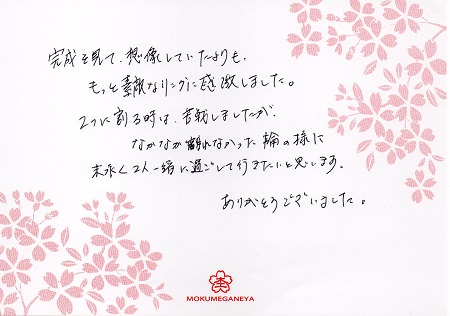 完成を見て、想像していたよりも、
もっと素敵なリングに感激しました。
2つに割る時は、苦戦しましたが、
なかなか離れなかった輪の様に
末永く2人一緒に過ごして行きたいと思います。
ありがとうございました。
MOKUMEGANEYA